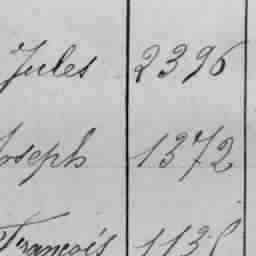 Jules 2396
Joseph 1372
François